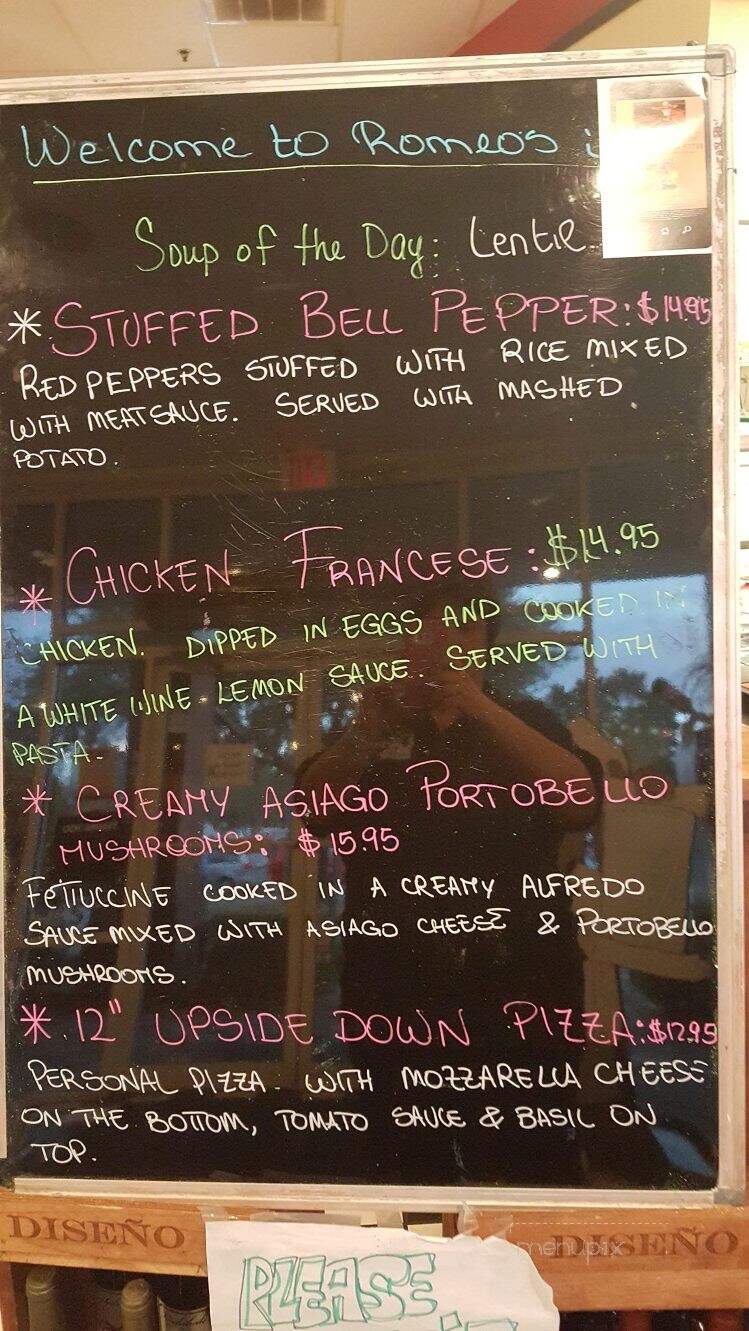 Welcome to Romeo's
Soup of the Day: Lentil
* STUFFED BELL PEPPER: $14.95
RED PEPPERS STUFFED WITH RICE MIXED
WITH MEAT SAUCE. SERVED WITH MASHED
POTATO.
* CHICKEN FRANCESE: $14.95
CHICKEN. DIPPED IN EGGS AND COOKED IN
A WHITE WINE LEMON SAUCE. SERVED WITH
PASTA.
* CREAMY ASIAGO PORTOBELLO
MUSHROOMS: $15.95
FETTUCCINE COOKED IN A CREAMY ALFREDO
SAUCE MIXED WITH ASIAGO CHEESE & PORTOBELLO
MUSHROOMS.
* 12" UPSIDE DOWN PIZZA: $12.95
PERSONAL PIZZA WITH MOZZARELLA CHEESE
ON THE BOTTOM, TOMATO SAUCE & BASIL ON
TOP.
DISEÑO DISEÑO
menupix
PLEASE